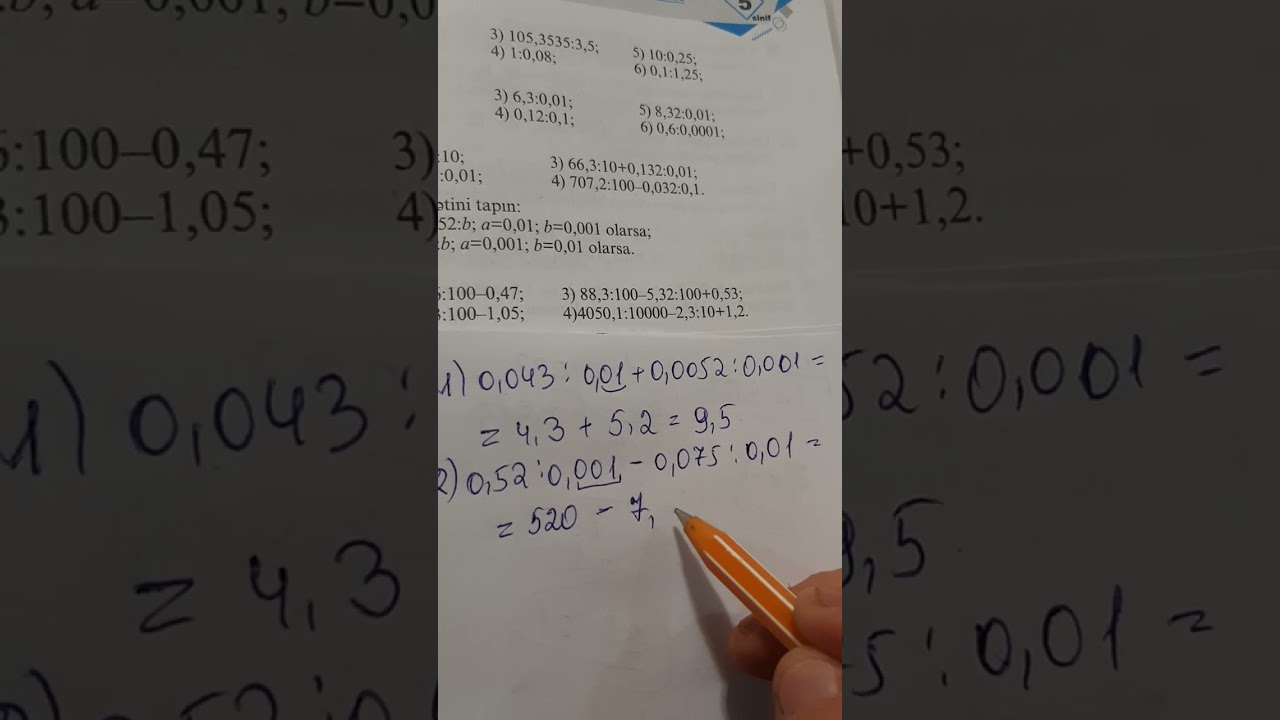 5
sinif
3) 105,3535:3,5;
5) 10:0,25;
4) 1:0,08;
6) 0,1:1,25;
3) 6,3:0,01;
5) 8,32:0,01;
4) 0,12:0,1;
6) 0,6:0,0001;
:10;
3) 66,3:10+0,132:0,01;
:0,01;
4) 707,2:100–0,032:0,1.
ətini tapın:
52:b; a=0,01; b=0,001 olarsa;
:b; a=0,001; b=0,01 olarsa.
6:100–0,47;
3) 88,3:100–5,32:100+0,53;
3:100–1,05;
4)4050,1:10000–2,3:10+1,2.
1) 0,043 : 0,01 + 0,0052 : 0,001 =
= 4,3 + 5,2 = 9,5
2) 0,52 : 0,001 – 0,075 : 0,01 =
= 520 – 7,